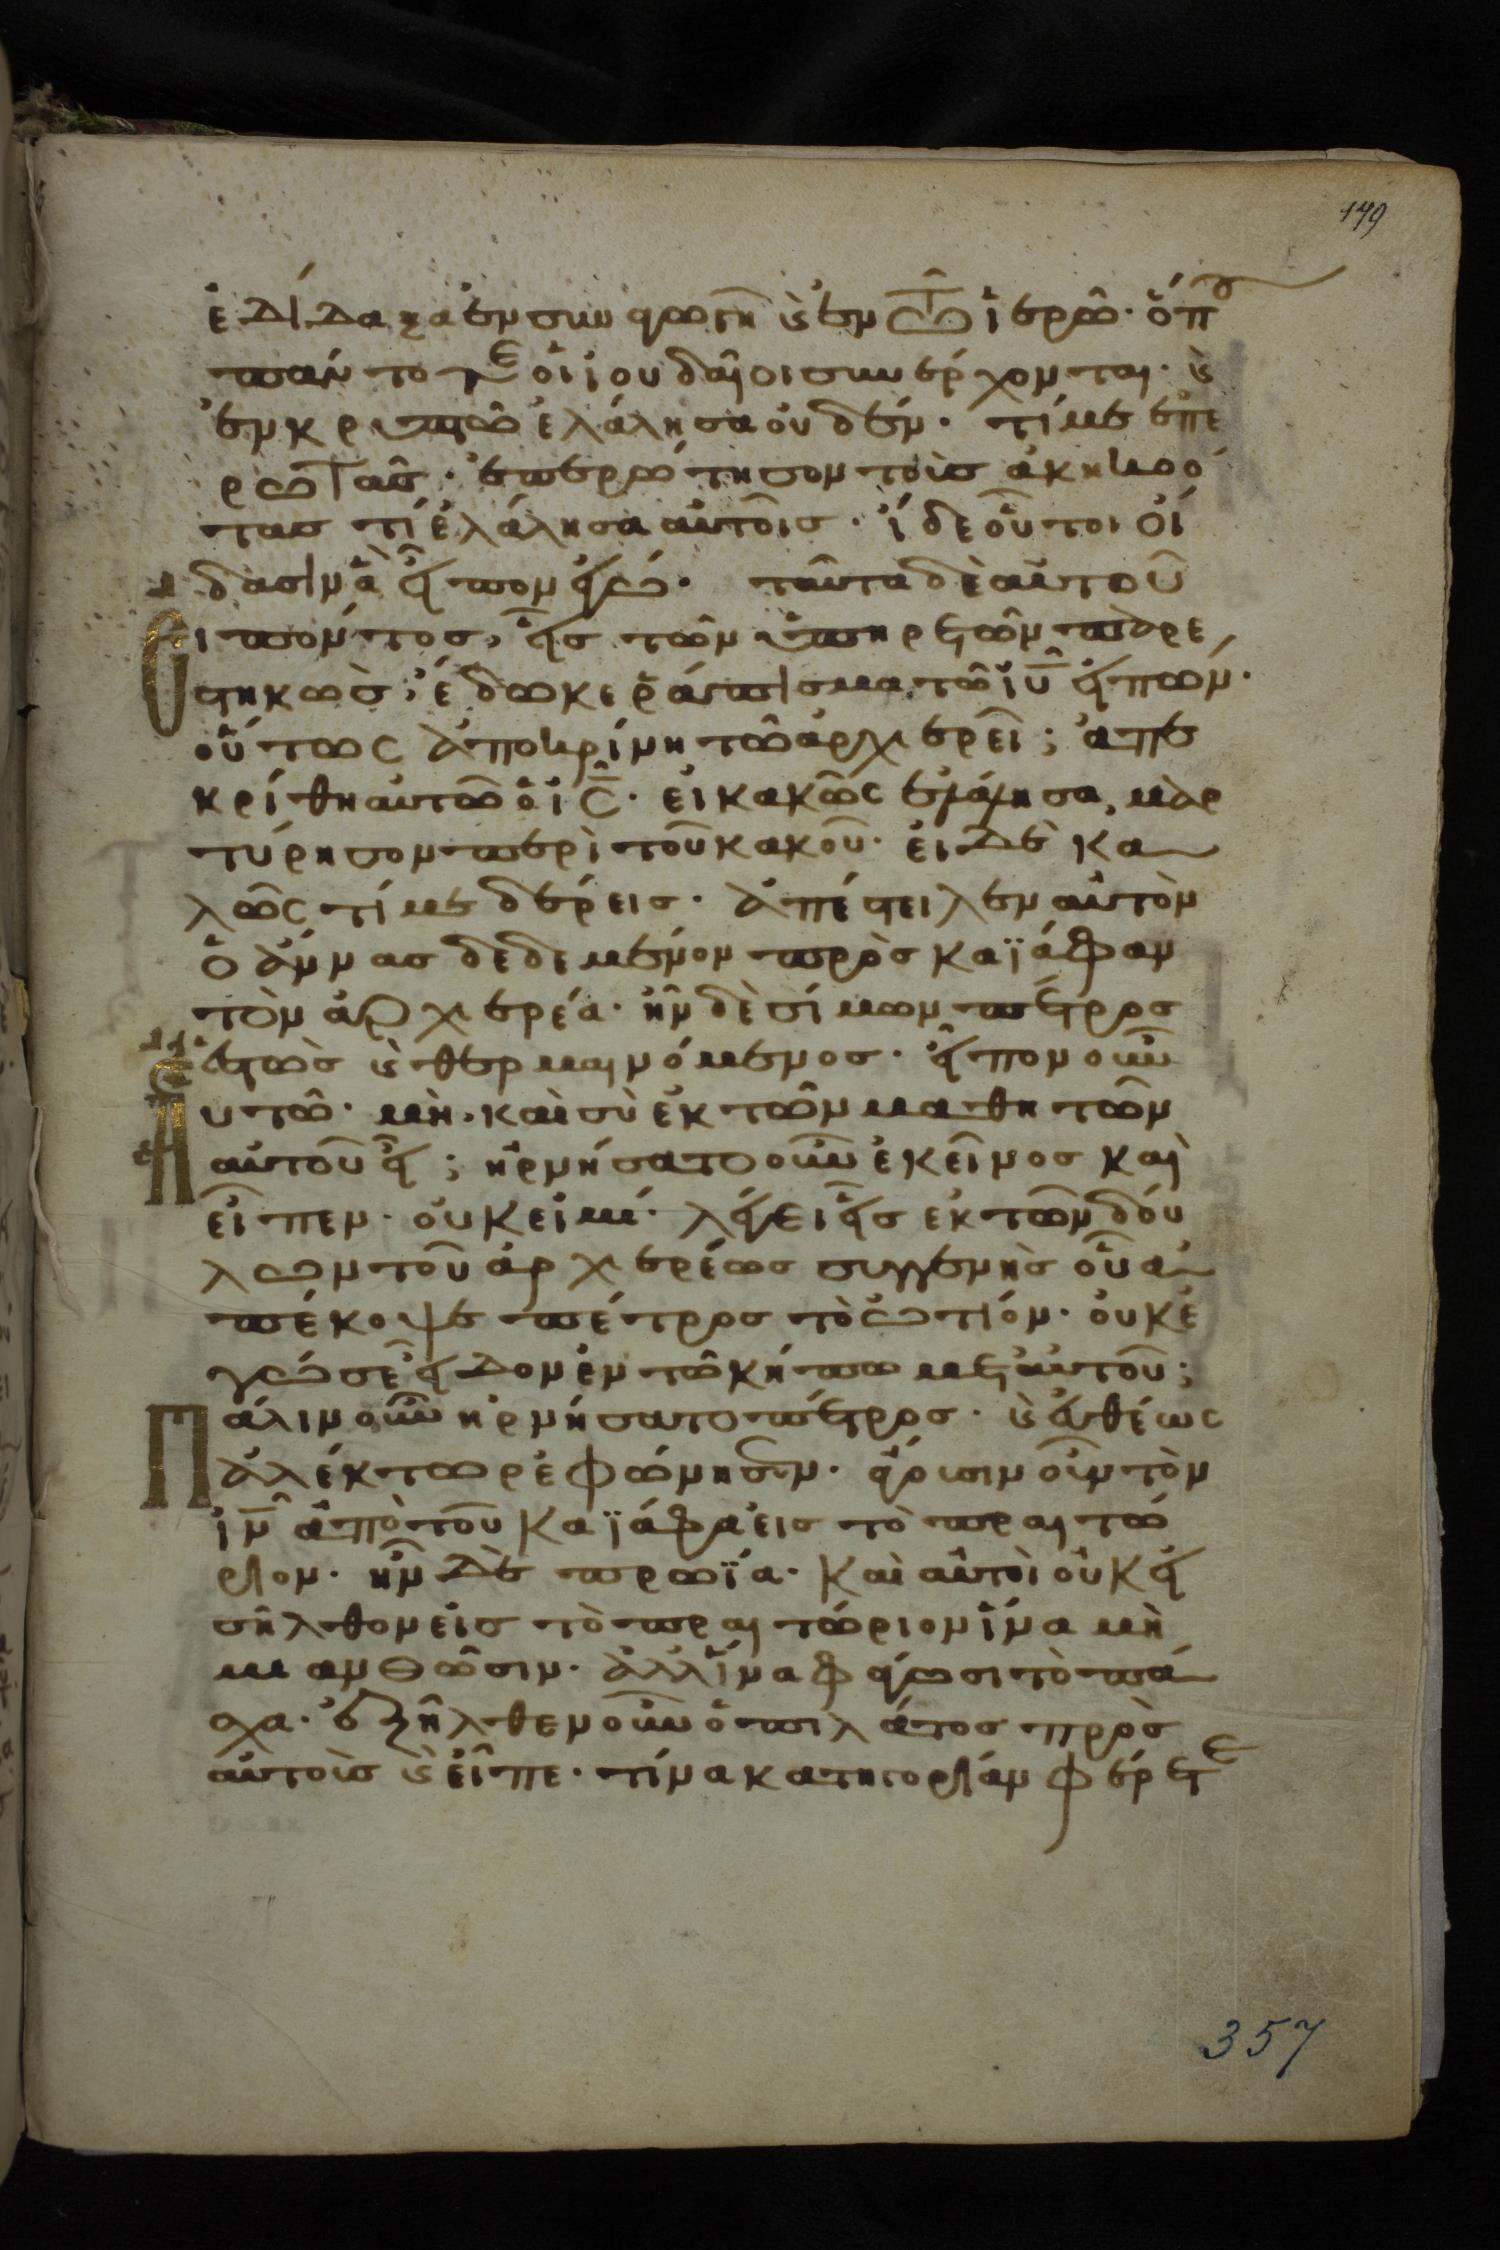 179
ἐδίδαξα ἐν συναγωγῆ καὶ ἐν τῶ ἱερῶ· ὅπου
πάντοτε οἱ ἰουδαῖοι συνέρχονται· καὶ
ἐν κρυπτῶ ἐλάλησα οὐδέν· τί με ἐπε
ρωτᾶς· ἐπερώτησον τοὺς ἀκηκοό
τας τί ἐλάλησα αὐτοῖς· ἴδε οὗτοι οἴ
δασιν ἃ εἶπον ἐγώ· ταῦτα δὲ αὐτοῦ
ειπόντος, εἷς τῶν ὑπηρετῶν παρε
στηκὼς, ἔδωκε ῥάπισμα τῶ ἰυ εἰπών·
οὕτως ἀποκρίνη τῶ ἀρχιερεῖ; ἀπε
κρίθη αὐτῶ ὁ ις· εἰ κακῶς ἐλάλησα, μαρ
τύρησον περὶ τοῦ κακοῦ· εἰ δὲ κα
λῶς τί με δέρεις· ἀπέστειλεν αὐτὸν
ὁ ἄννας δεδεμένον πρὸς καϊάφαν
τὸν ἀρχιερέα· ἦν δὲ σίμων πέτρος
ἑστὼς καὶ θερμαινόμενος· εἶπον οὖν
αυτῶ· μὴ καὶ σὺ ἐκ τῶν μαθητῶν
αὐτοῦ εἶ; ἠρνήσατο οὖν ἐκεῖνος καὶ
εἶπεν· οὐκ εἰμί· λέγει εἷς ἐκ τῶν δού
λων τοῦ ἀρχιερέως συγγενὴς οὗ ἀ
πέκοψε πέτρος τὸ ὠτίον· οὐκ ἐ
γώ σε εἶδον ἐν τῶ κήπω μετ αὐτοῦ;
Πάλιν οὖν ἠρνήσατο πέτρος· καὶ εὐθέως
ἀλέκτωρ ἐφώνησεν· ἄγουσιν οὖν τὸν
ιν ἀπὸ τοῦ καϊάφα εἰς τὸ πραιτώ
ριον· ἦν δὲ πρωΐα· καὶ αὐτοὶ οὐκ εἰ
σῆλθον εἰς τὸ πραιτώριον ἵνα μὴ
μιανθῶσιν· ἀλλ ἵνα φάγωσι τὸ πά
σχα· ἐξῆλθεν οὖν ὁ πιλάτος πρὸς
αὐτοὺς καὶ εἶπε· τίνα κατηγορίαν φέρετε
357